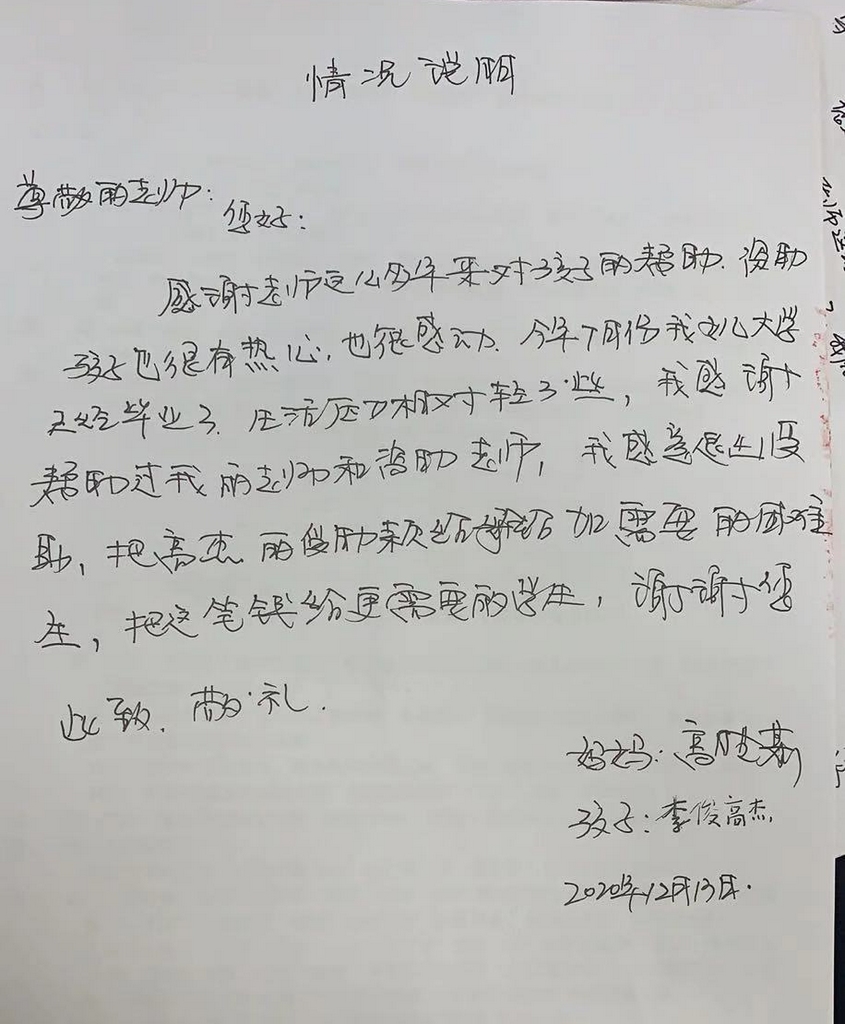 情况说明
尊敬的老师：
您好：
感谢老师这么多年来对孩子的帮助．设助
孩子也很有热心，也很感动．今年7月份我女儿大学
已经毕业了．生活压力相对轻了些，我感谢
帮助过我的老师和资助老师，我愿意退出设
助，把高杰的设助款给 加需要的困难
生，把这笔钱给更需要的学生，谢谢您
此致．敬礼．
妈妈：高胜
孩子：李俊高杰．
2020年12月13日．